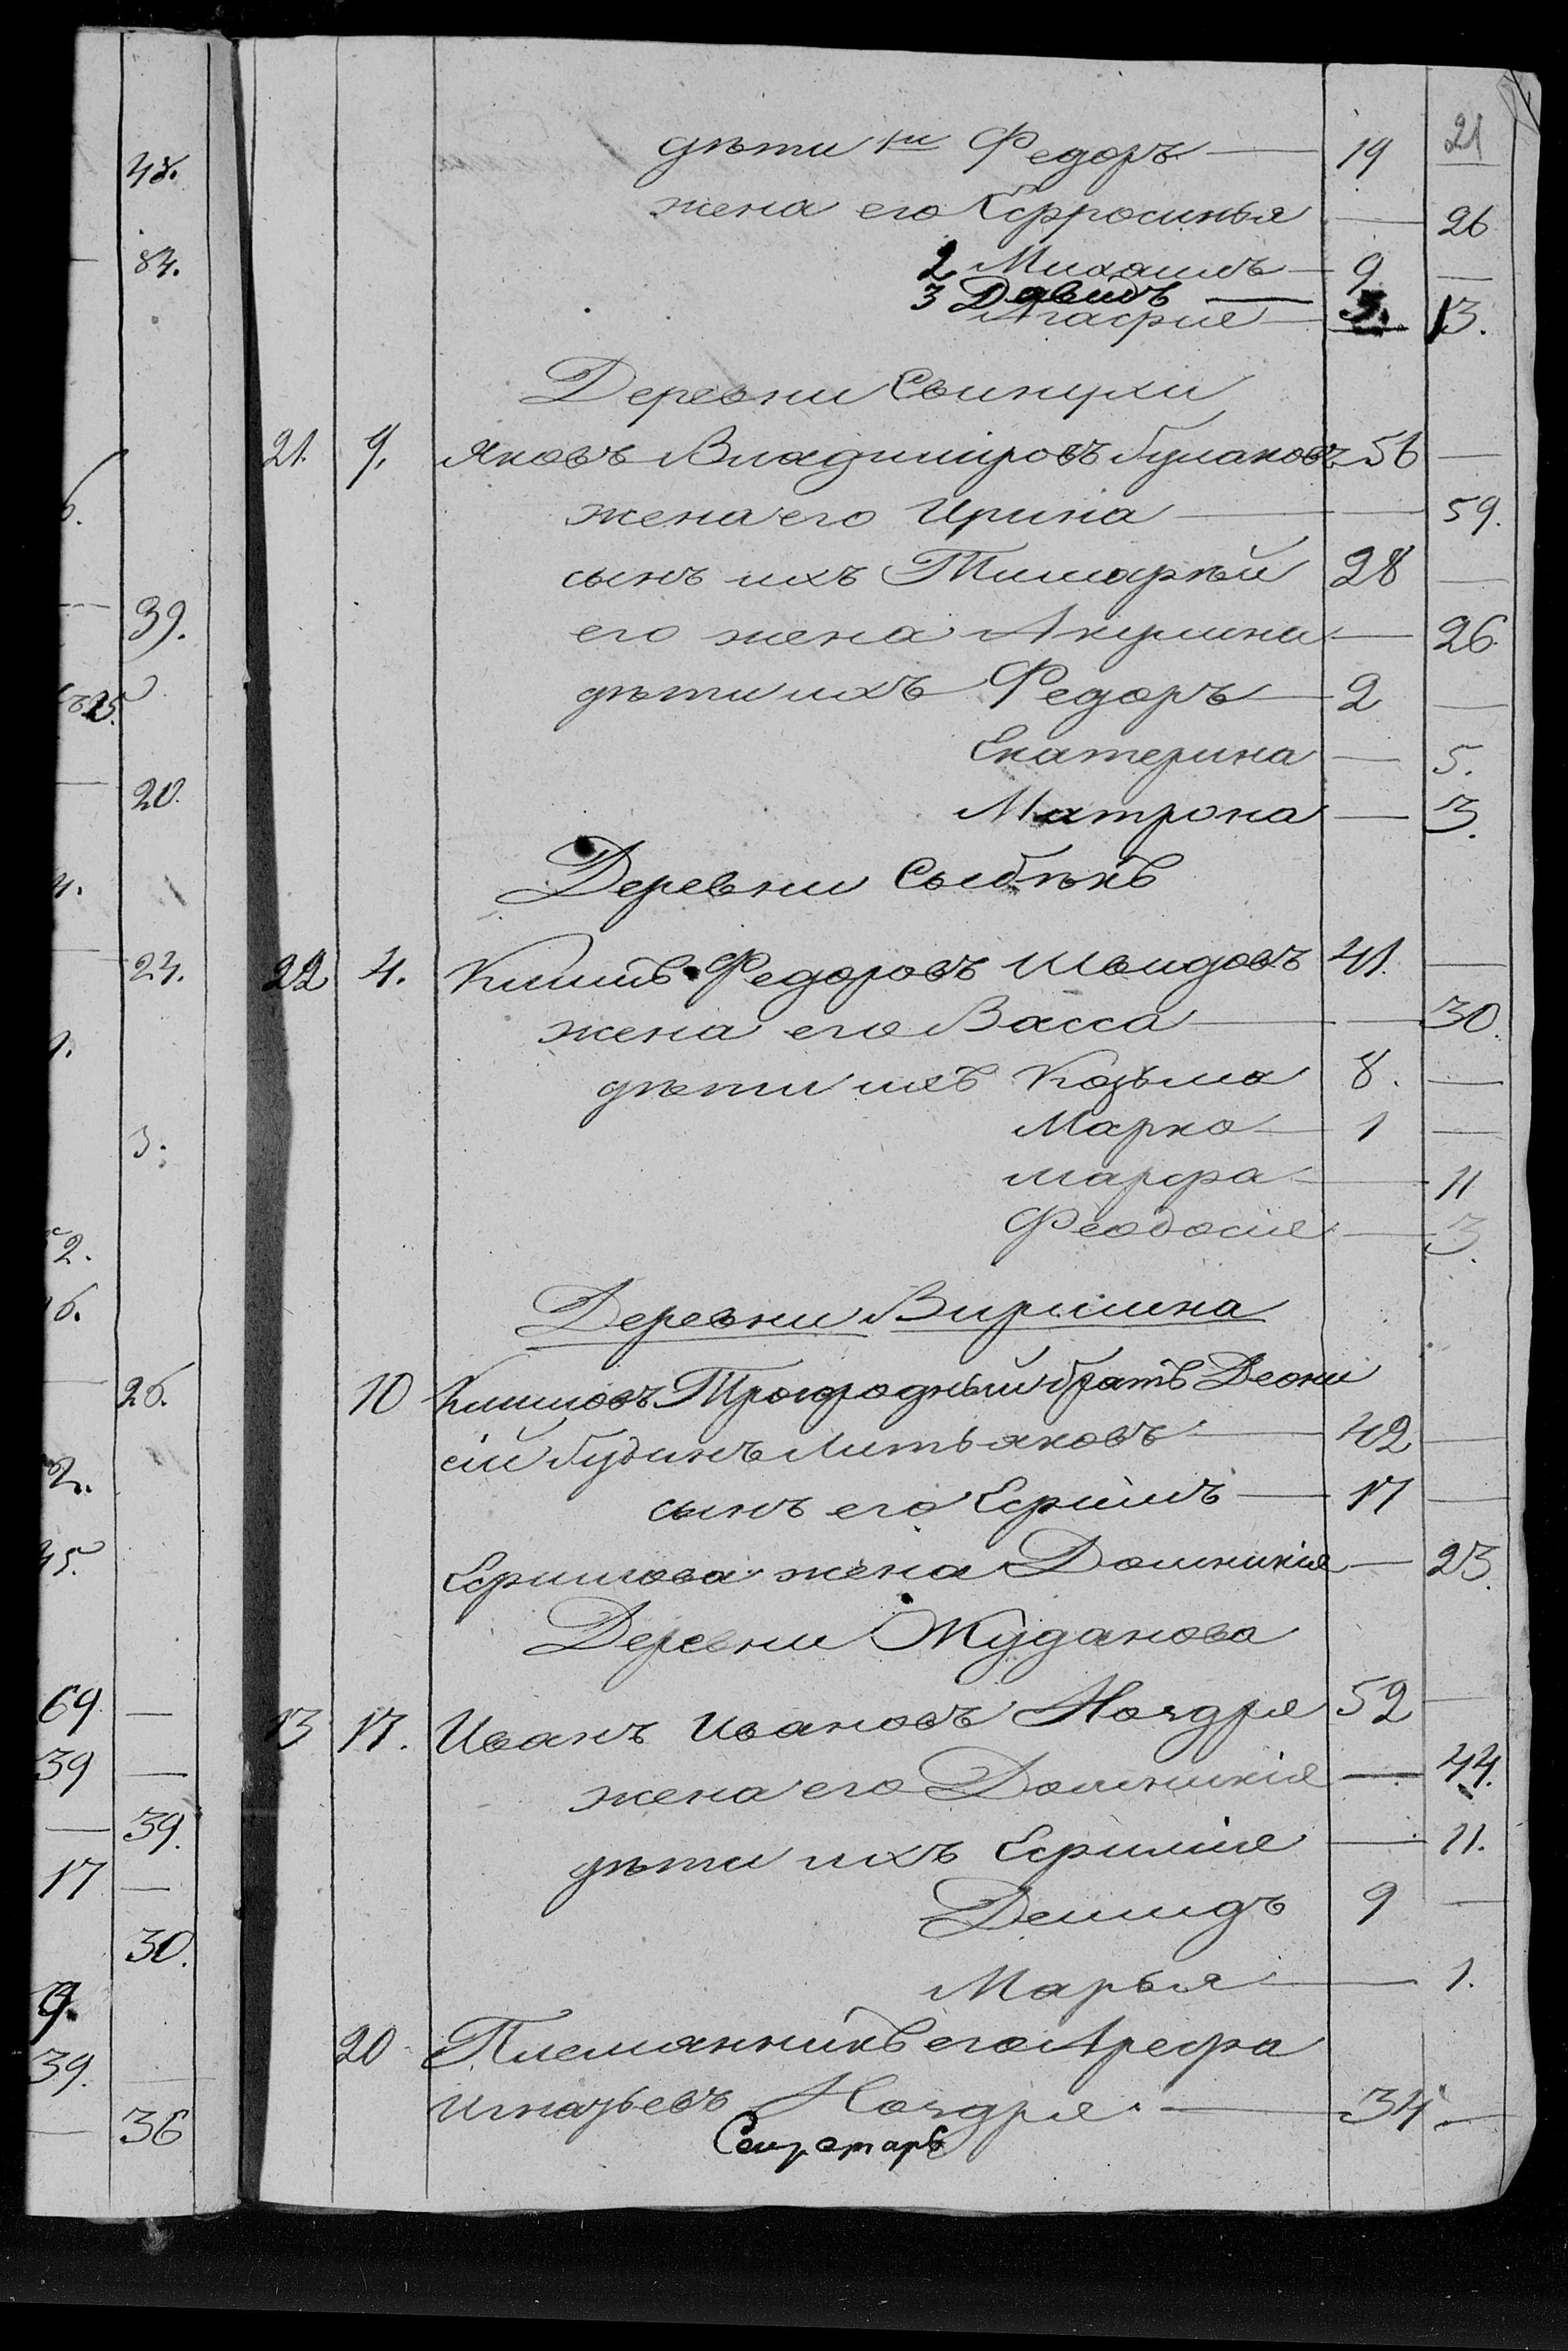 48.
84.
39.
25.
20.
24.
3.
2.
6.
26.
2.
45.
69 —
39 —
— 39.
17 —
30.
9.
39.
— 36
21
дѣти 1й Федоръ — 19
жена его Ефросинья — 26
2 Михаилъ — 9 —
3 Давидъ — 3.
Агафія — 13.
Деревни Свинухи
21. 9. Яковъ Владимировъ Булаковъ 56 —
жена его Ирина — 59.
сынъ ихъ Тимофѣй 28 —
его жена Акулина — 26
дѣти ихъ Федоръ — 2 —
Екатерина — 5.
Матрона — 3.
Деревни
22 4. Климъ Федоровъ Шведовъ 41. —
жена его Васса — 30.
дѣти ихъ Козьма 8. —
Марко — 1 —
Марфа — 11
Феодосія — 3.
Деревни Виришна
10 Климовъ Троюродный братъ Деони
сій — 42 —
сынъ его Ефимъ — 17 —
Ефимова жена Домникія — 23.
Деревни Жуданова
13 17. Иванъ Ивановъ Ноздря 52 —
жена его Домникія — 44.
дѣти ихъ Ефимія — 11.
Демидъ 9 —
Марья — 1.
20 Племянникъ его Арефа
Игнатьевъ Ноздря — 34 —
Секретарь